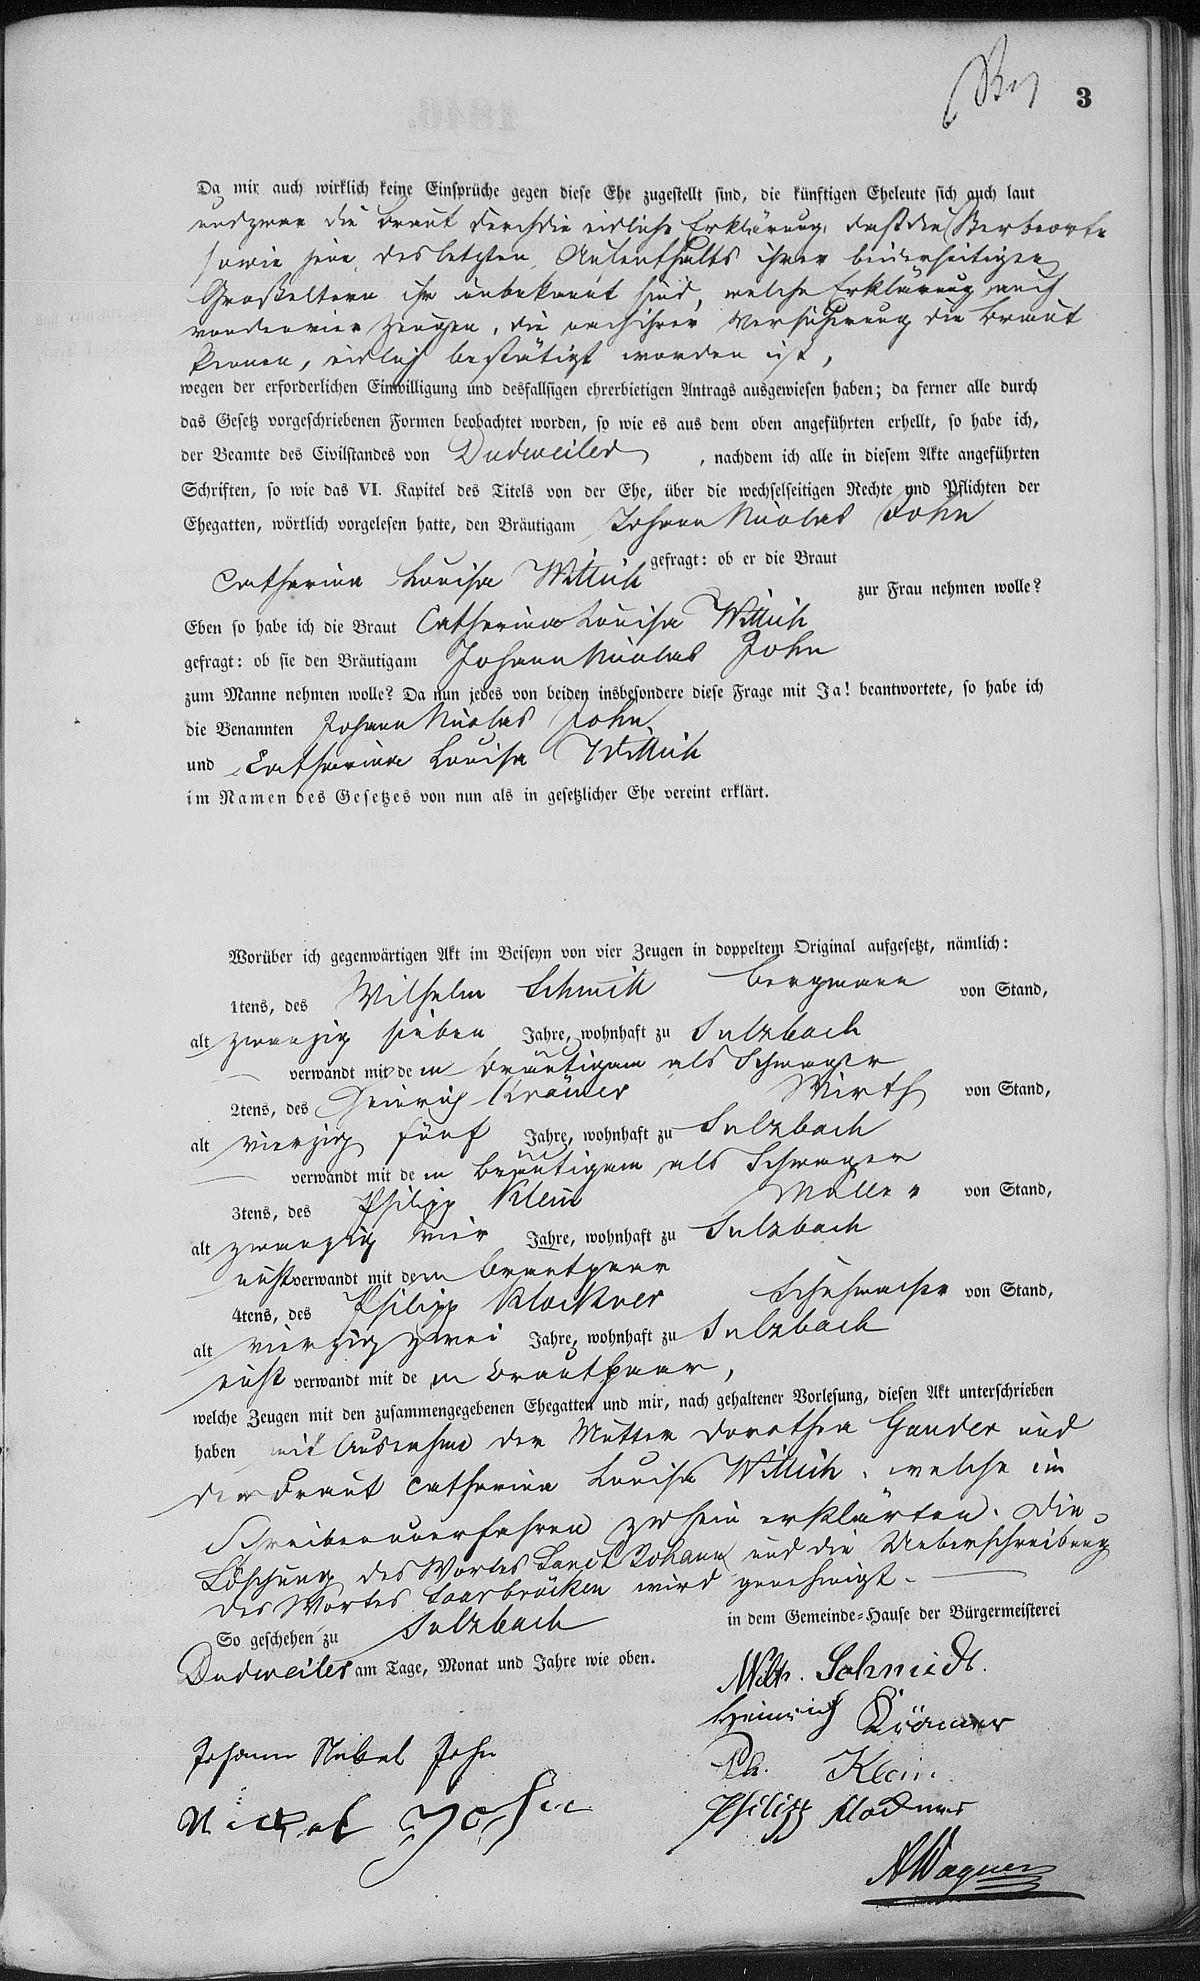 3
Da mir auch wirklich keine Einsprüche gegen diese Ehe zugestellt sind, die künftigen Eheleute sich auch laut
und zwar die Braut durch die eidliche Erklärung, daß die Sterbeorte
sowie jene des letzten Aufenthalts ihrer beiderseitigen
Großeltern ihr unbekannt sind, welche Erklärung auch
von den vier Zeugen, die nach ihrer Versicherung die Braut
kennen, eidlich bestätigt worden ist,
wegen der erforderlichen Einwilligung und desfallsigen ehrerbietigen Antrags ausgewiesen haben; da ferner alle durch
das Gesetz vorgeschriebenen Formen beobachtet worden, so wie es aus dem oben angeführten erhellt, so habe ich,
der Beamte des Civilstandes von Dudweiler, nachdem ich alle in diesem Akte angeführten
Schriften, so wie das VI. Kapitel des Titels von der Ehe, über die wechselseitigen Rechte und Pflichten der
Ehegatten, wörtlich vorgelesen hatte, den Bräutigam Johann Nicolas John
gefragt: ob er die Braut
Catharina Louisa Wittich zur Frau nehmen wolle?
Eben so habe ich die Braut Catharina Louisa Wittich
gefragt: ob sie den Bräutigam Johann Nicolas John
zum Manne nehmen wolle? Da nun jedes von beiden insbesondere diese Frage mit Ja! beantwortete, so habe ich
die Benannten Johann Nicolas John
und Catharina Louisa Wittich
im Namen des Gesetzes von nun als in gesetzlicher Ehe vereint erklärt.
Worüber ich gegenwärtigen Akt im Beiseyn von vier Zeugen in doppeltem Original aufgesetzt, nämlich:
1tens, des Wilhelm Schmitt Bergmann von Stand,
alt zwanzig sieben Jahre, wohnhaft zu Sulzbach
verwandt mit dem Bräutigam als Schwager
2tens, des Heinrich Krämer Wirth von Stand,
alt vierzig fünf Jahre, wohnhaft zu Sulzbach
verwandt mit dem Bräutigam als Schwager
3tens, des Philipp Klein Müller von Stand,
alt zwanzig vier Jahre, wohnhaft zu Sulzbach
nicht verwandt mit dem Brautpaar
4tens, des Philipp Klockner Schuhmacher von Stand,
alt vierzig zwei Jahre, wohnhaft zu Sulzbach
nicht verwandt mit dem Brautpaar,
welche Zeugen mit den zusammengegebenen Ehegatten und mir, nach gehaltener Vorlesung, diesen Akt unterschrieben
haben mit Ausnahme der Mutter Dorothea Gander und
der Braut Catharina Louisa Wittich, welche im
Schreiben unerfahren zu sein erklärten. Die
Löschung des Wortes Sanct Johann und die Ueberschreibung
des Wortes Saarbrücken wird genehmigt.
So geschehen zu Sulzbach in dem Gemeinde-Hause der Bürgermeisterei
Dudweiler am Tage, Monat und Jahre wie oben.
Wilh. Schmidt.
Heinrich Krämer
Johann Nikel John
Ph. Klein
Nickel John
Philipp Klockner
Wagner